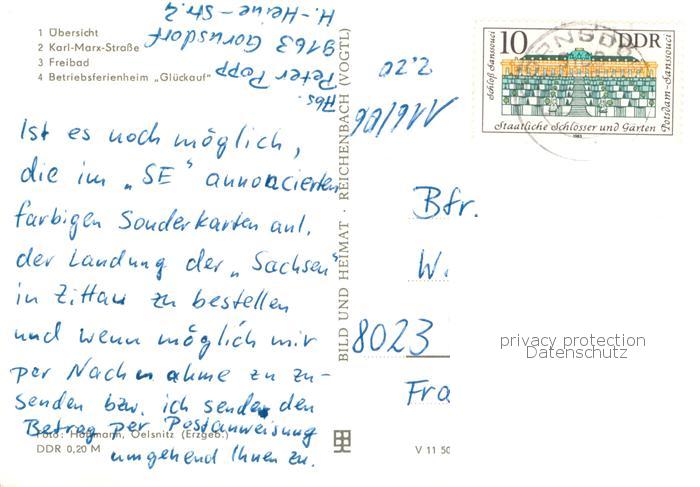 1 Übersicht
2 Karl-Marx-Straße
3 Freibad
4 Betriebsferienheim „Glückauf"
Abs.
Peter Popp
9163 Gornsdorf
H.-Heine-Str. 2
Ist es noch möglich,
die im „SE" annoncierten
farbigen Sonderkarten anl.
der Landung der „Sachsen"
in Zittau zu bestellen
und wenn möglich mir
per Nachnahme zu zu-
senden bzw. ich sende den
Betrag per Postanweisung
umgehend Ihnen zu.
Foto: Hoffmann, Oelsnitz (Erzgeb.)
DDR 0,20 M
BILD UND HEIMAT · REICHENBACH (VOGTL)
V 11 50
2,20
10 DDR
Schloß Sanssouci
Potsdam-Sanssouci
Staatliche Schlösser und Gärten
1983
Bfr.
W.
8023
Fra
privacy protection
Datenschutz